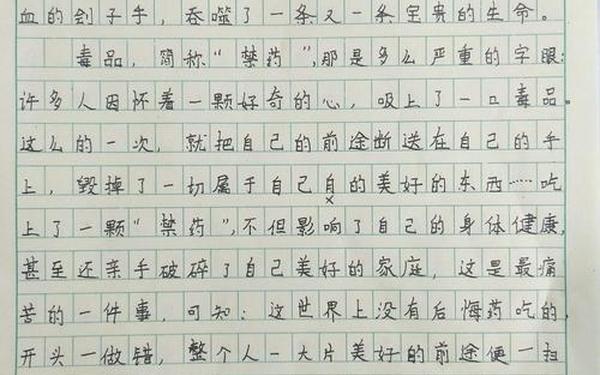 血的刽子手，吞噬了一条又一条宝贵的生命。
毒品，简称“禁药”，那是多么严重的字眼：
许多人因怀着一颗好奇的心，吸上了一口毒品。
这么的一次，就把自己的前途断送在自己的手
上，毁掉了一切属于自己自的美好的东西……吃
上了一颗“禁药”，不但影响了自己的身体健康，
甚至还亲手破碎了自己美好的家庭，这是最痛
苦的一件事，可知：这世界上没有后悔药吃的，
开头一做错，整个人一大片美好的前途便一扫